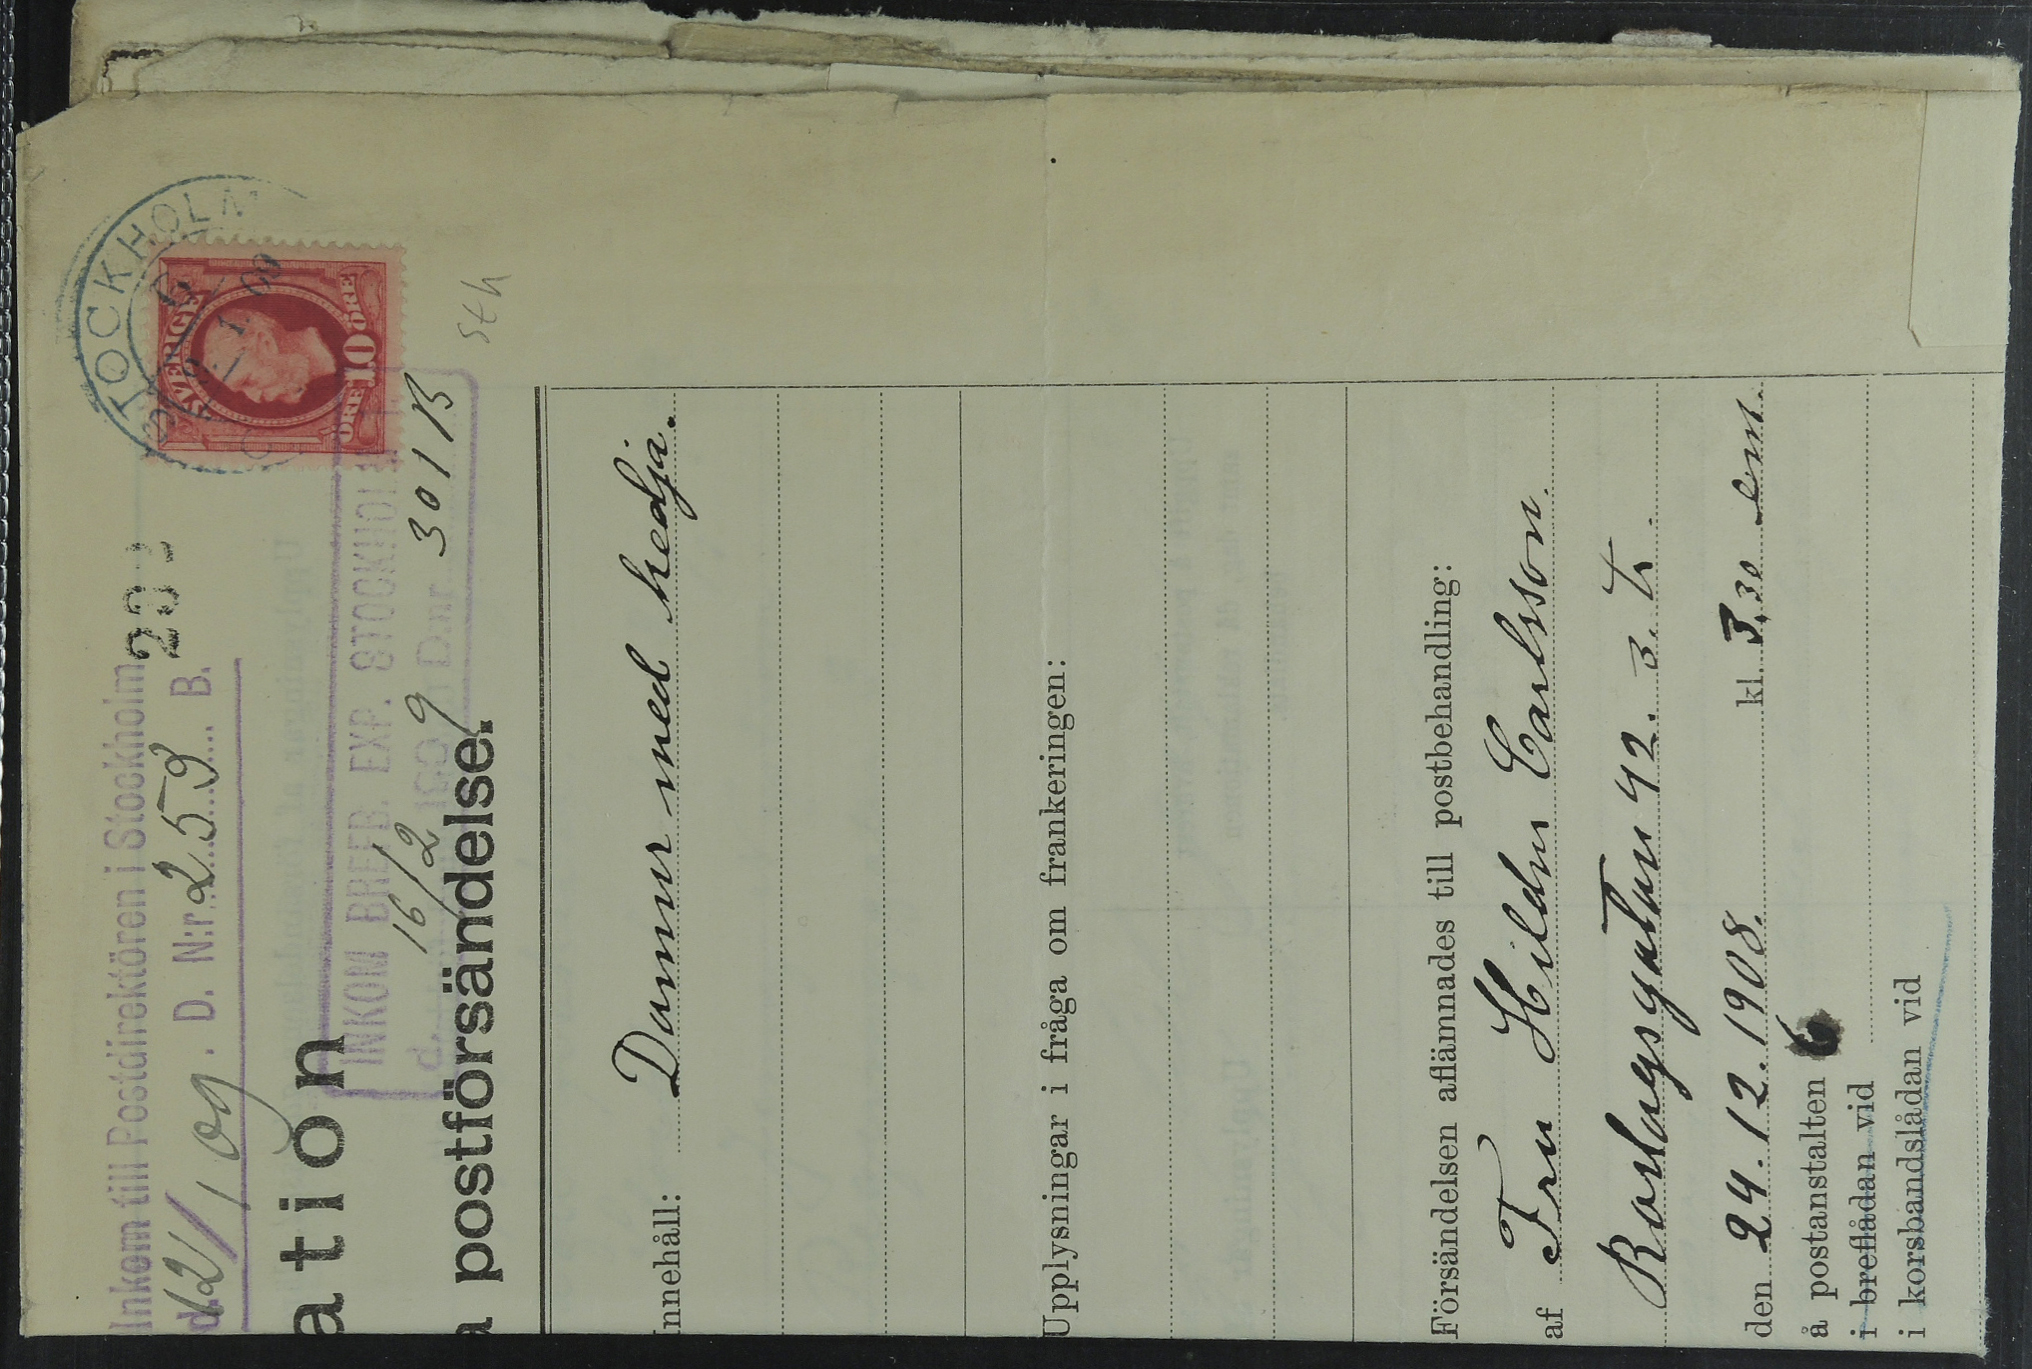 Inkom till Postdirektören i Stockholm
d. 12/1 09. D. N:r 259 B.
STOCKHOLM
1. 09
SVERIGE
ÖRE 10 ÖRE
ation
INKOM BREFB. EXP. STOCKHOLM 1
d. 16/2 1909 D.nr 301 B
a postförsändelse.
Sth
Innehåll: Damur med kedja.
Upplysningar i fråga om frankeringen:
Försändelsen aflämnades till postbehandling:
af Fru Hilda Carlsson.
Roslagsgatan 42. 3. tr.
den 24.12.1908. kl. 3,30 em.
å postanstalten 6
i breflådan vid
i korsbandslådan vid